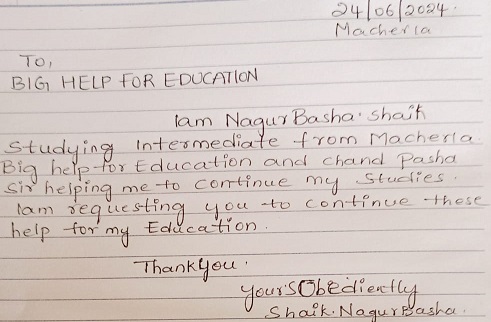 24/06/2024.
Macherla
To,
BIG HELP FOR EDUCATION
Iam Nagur Basha. Shaik
Studying Intermediate from Macherla.
Big help for Education and chand Pasha
Sir helping me to continue my Studies.
Iam requesting you to continue these
help for my Education.
Thankyou.
your's Obediently
Shaik. Nagur Basha.